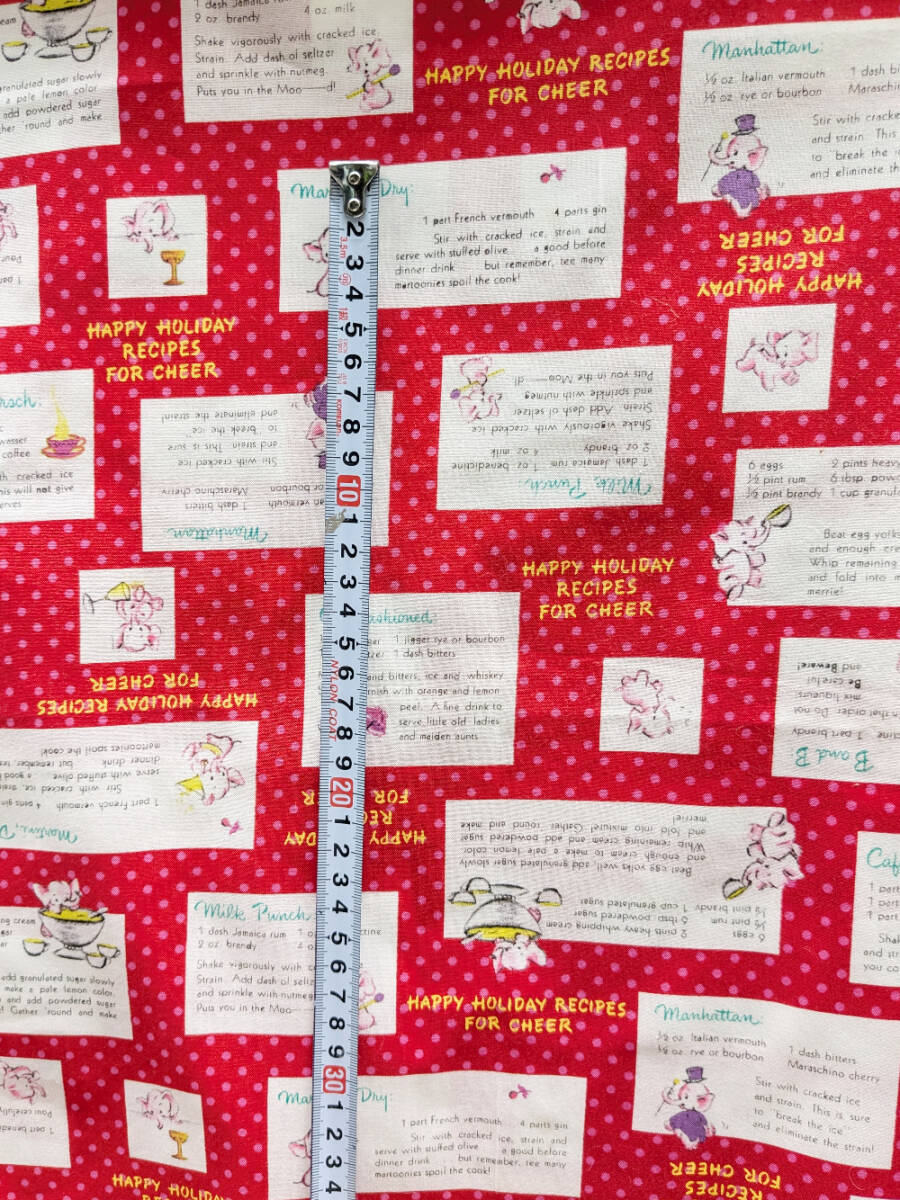 1 dash Jamaica rum
2 oz. brandy 4 oz. milk
Shake vigorously with cracked ice.
Strain. Add dash of seltzer
and sprinkle with nutmeg.
Puts you in the Moo——d!
cream
granulated sugar slowly
a pale lemon color
add powdered sugar
'round and make
HAPPY HOLIDAY RECIPES
FOR CHEER
Manhattan:
½ oz. Italian vermouth 1 dash
½ oz. rye or bourbon Maraschino
Stir with cracked
and strain. This
to "break the
and eliminate
Dry:
1 part French vermouth 4 parts gin
Stir with cracked ice, strain and
serve with stuffed olive a good before
dinner drink but remember, tee many
martoonies spoil the cook!
HAPPY HOLIDAY
RECIPES
FOR CHEER
HAPPY HOLIDAY
RECIPES
FOR CHEER
coffee
cracked ice
will not give
Manhattan
vermouth 1 dash bitters
or bourbon Maraschino cherry
Stir with cracked ice
and strain. This is sure
to "break the ice"
and eliminate the strain!
Milk Punch:
1 dash Jamaica rum 1 oz. benedictine
2 oz. brandy 4 oz. milk
Shake vigorously with cracked ice
Strain. Add dash of seltzer
and sprinkle with nutmeg
Puts you in the Moo——d!
6 eggs 2 pints heavy
½ pint rum 6 tbsp.
½ pint brandy 1 cup
Beat egg yolks
and enough
Whip remaining
and fold into
merrie!
HAPPY HOLIDAY
RECIPES
FOR CHEER
HAPPY HOLIDAY RECIPES
FOR CHEER
1 jigger rye or bourbon
1 dash bitters
and bitters, ice and whiskey
with orange and lemon
peel. A fine drink to
serve little old ladies
and maiden aunts
B and B
1 part brandy
that order. Do not
mix liqueurs
Be careful
and Beware!
Martini, D
1 part French vermouth 4
Stir with cracked ice,
serve with stuffed olive a good
dinner drink but remember,
martoonies spoil the cook!
HAPPY
FOR
6 eggs 2 pints heavy whipping cream
½ pint rum 6 tbsp. powdered sugar
½ pint brandy 1 cup granulated sugar
Beat egg yolks well, add granulated sugar slowly
and enough cream to make a pale lemon color.
Whip remaining cream and add powdered sugar
and fold into mixture! Gather 'round and make
merrie!
cream
add granulated sugar slowly
make a pale lemon color
and add powdered sugar
Gather 'round and make
Milk Punch
1 dash Jamaica rum
2 oz. brandy
Shake vigorously with
Strain. Add dash of
and sprinkle with nutmeg
Puts you in the Moo
1 part
1 part
1 part
HAPPY HOLIDAY RECIPES
FOR CHEER
Manhattan:
½ oz. Italian vermouth 1 dash bitters
½ oz. rye or bourbon Maraschino cherry
Stir with cracked ice
and strain. This is sure
to "break the ice"
and eliminate the strain!
Dry:
1 part French vermouth 4 parts gin
Stir with cracked ice, strain and
serve with stuffed olive a good before
dinner drink but remember, tee many
martoonies spoil the cook!
HAPPY HOLIDAY
RECIPES
FOR CHEER
2
3
3.5m
4
5
6
7
8
9
10
1
2
3
4
5
6
NYLON COAT
7
8
9
20
1
2
3
4
5
6
7
8
9
30
1
2
3
4